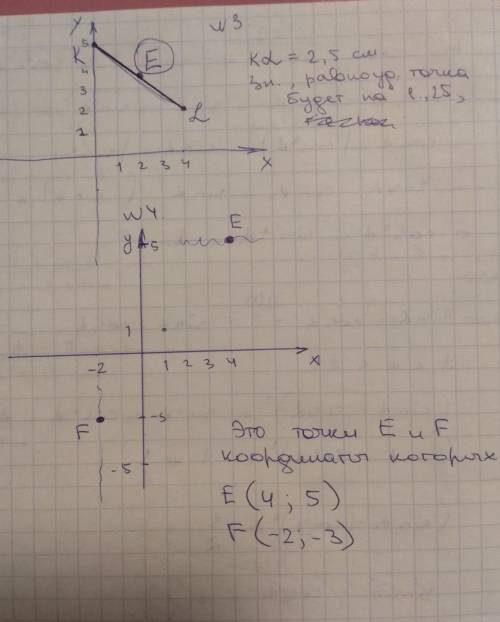 N3
y
5
K
4
3
2
1
E
L
1 2 3 4
x
KL = 2,5 см
Зн., равноуд. точка
будет на 1,25,
N4
E
y
5
1
-2
1 2 3 4
x
F
-3
-5
Это точки E и F
координаты которых
E (4 ; 5)
F (-2; -3)